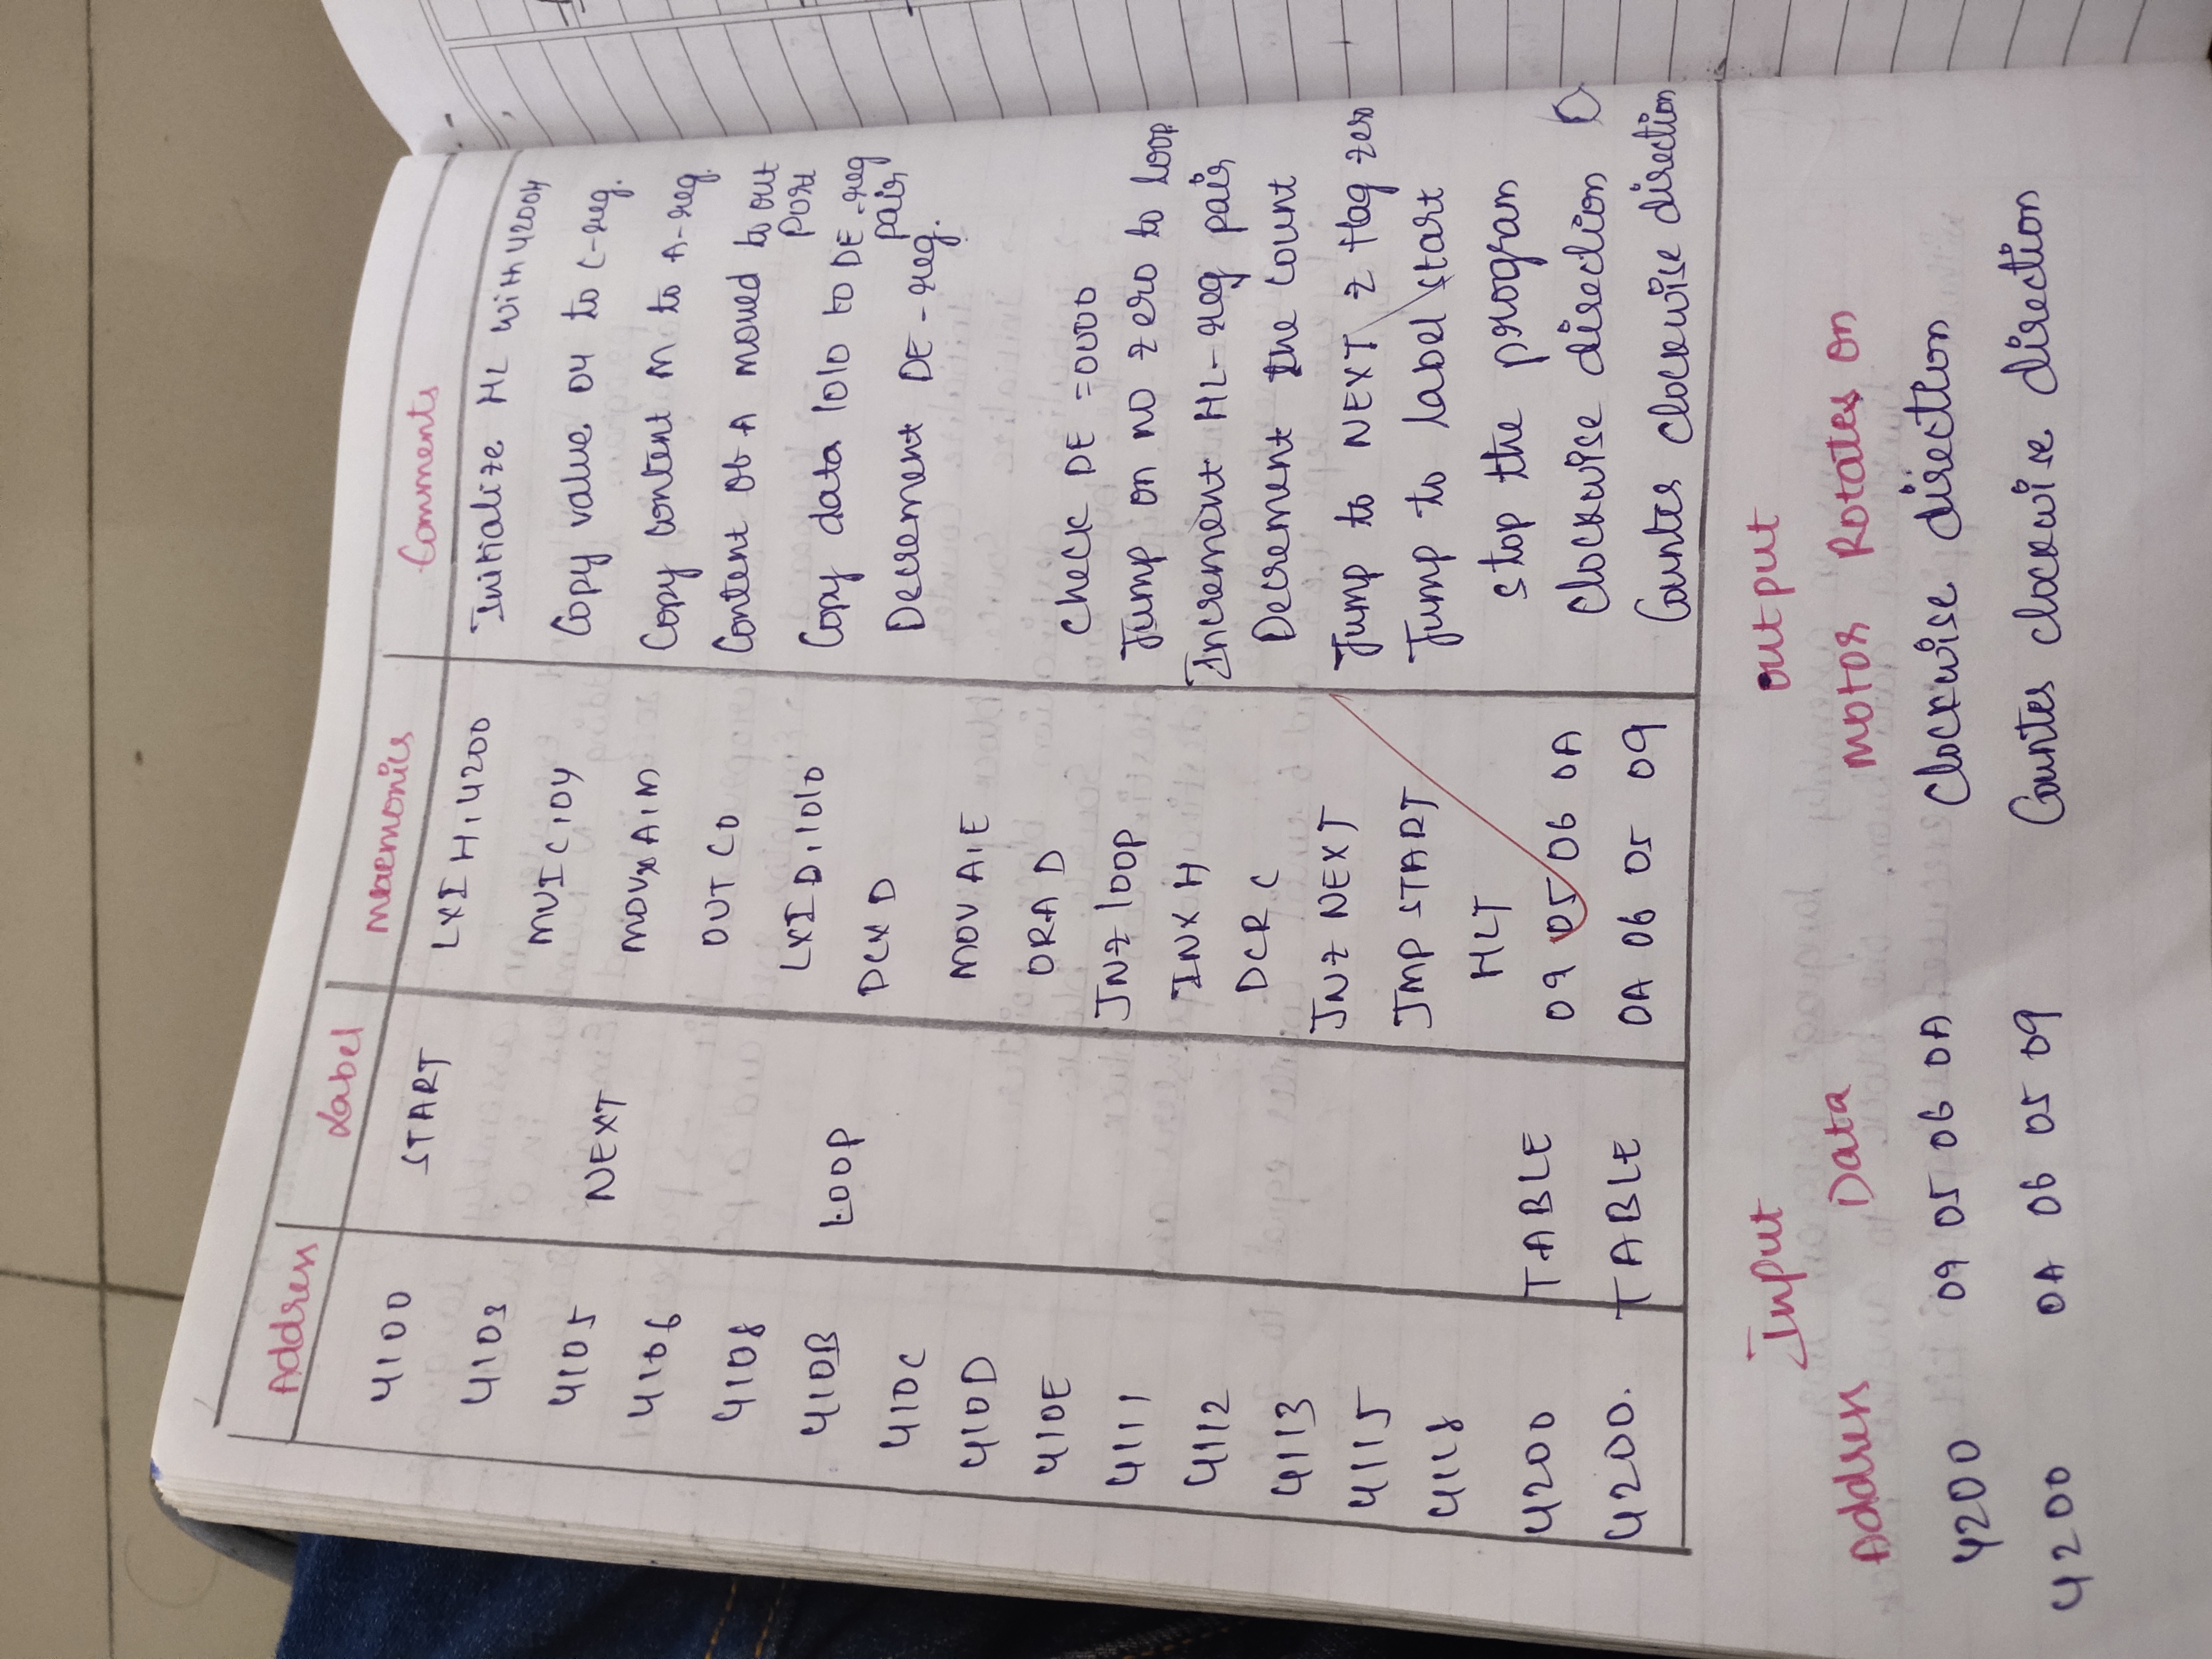 Address Label Mnemonics Comments
4100 START LXI H, 4200 Initialize HL with 4200H
4103 MVI C, 04 Copy value 04 to C-reg.
4105 NEXT MOVx A, M Copy content M to A-reg.
4106 OUT C0 Content of A moved to out Port
4108 LXI D, 1010 Copy data 1010 to DE-reg pair
410B LOOP DCX D Decrement DE-reg.
410C MOV A, E
410D ORA D check DE =0000
410E JNZ loop Jump on no zero to loop
4111 INX H Increment HL-reg pair
4112 DCR C Decrement the count
4113 JNZ NEXT Jump to NEXT z flag zero
4115 JMP START Jump to label start
4118 HLT stop the program
4200 TABLE 09 05 06 0A clockwise direction
4200. TABLE 0A 06 05 09 Counter clockwise direction
Input output
Address Data Motor Rotates on
4200 09 05 06 0A Clockwise direction
4200 0A 06 05 09 Counter clockwise direction